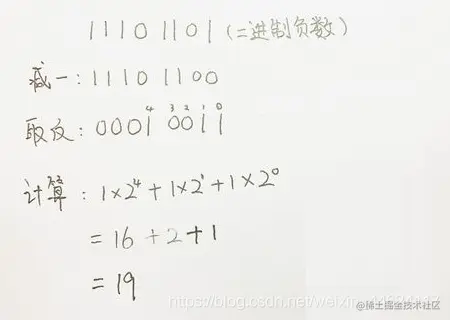 1110 1101 (二进制负数)
减一：1110 1100
4 3 2 1 0
取反：0001 0011
计算：1×2⁴+1×2¹+1×2⁰
=16+2+1
=19
https://blog.csdn.net/weixin
@稀土掘金技术社区